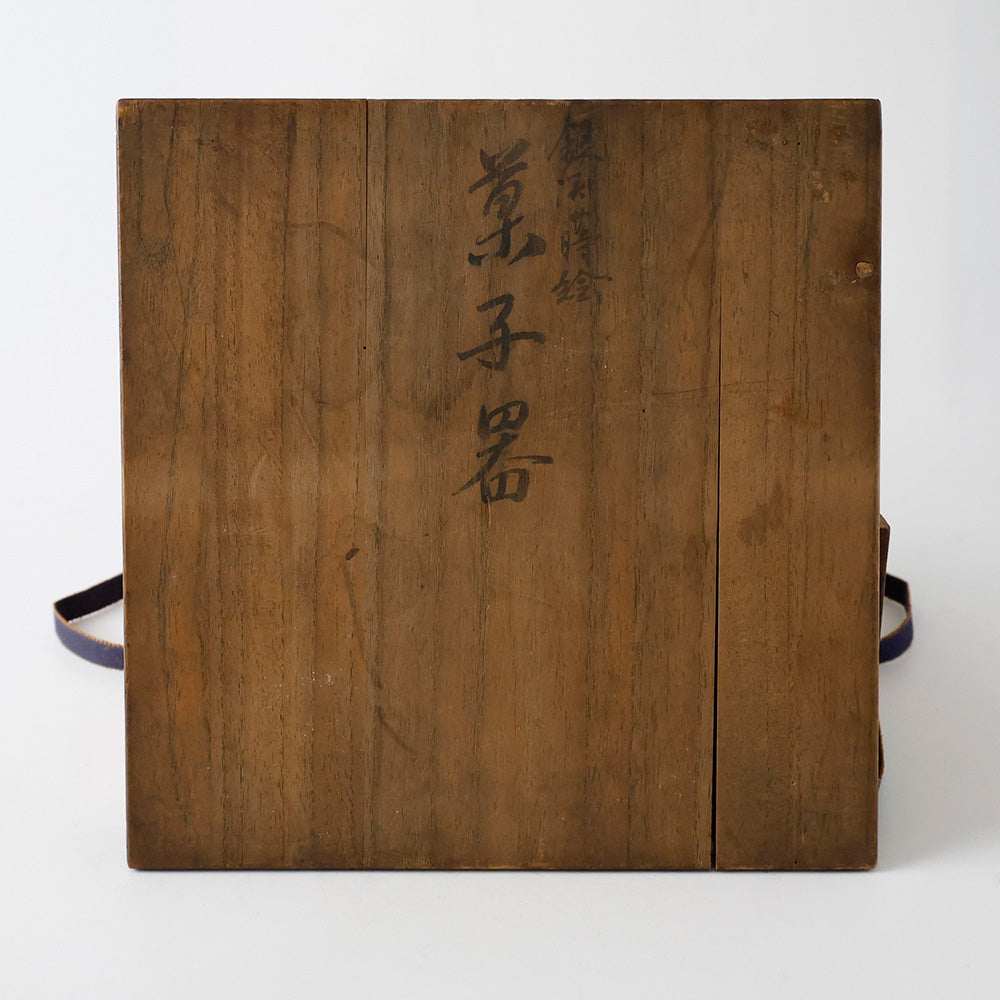 銀蒔絵
菓子器